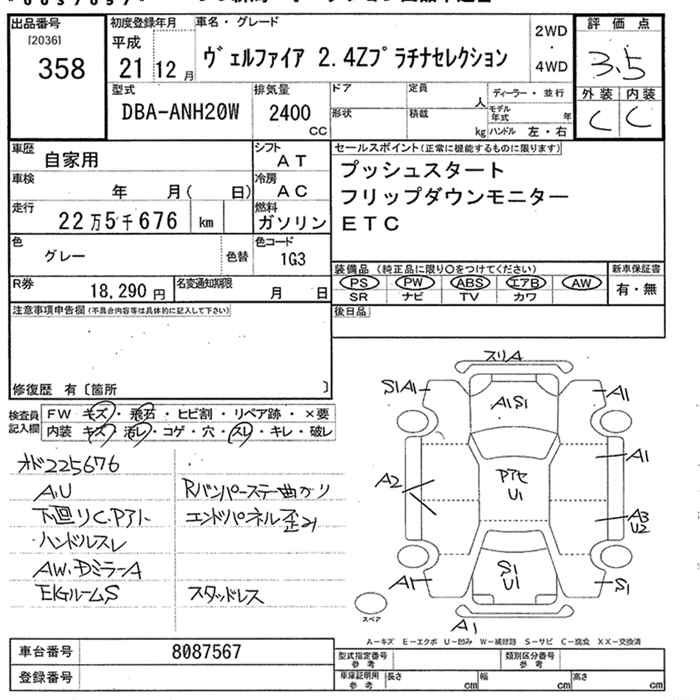 出品番号
[2036]
358
初度登録年月
平成
21 12 月
車名・グレード
ヴェルファイア 2.4Zプラチナセレクション
2WD
・
4WD
評価点
3.5
外装 内装
C C
型式
DBA-ANH20W
排気量
2400
CC
ドア
定員
人
ディーラー・並行
形状
積載
kg
モデル年式
年
ハンドル 左・右
車歴
自家用
シフト
AT
車検
年 月( 日)
冷房
AC
走行
22万5千676 km
燃料
ガソリン
色
グレー
色替
色コード
1G3
R券
18,290 円
名変通知期限
月 日
セールスポイント(正常に機能するものに限ります)
プッシュスタート
フリップダウンモニター
ETC
装備品(純正品に限り○をつけてください)
PS PW ABS エアB AW
SR ナビ TV カワ
新車保証書
有・無
後日品
注意事項申告欄(不具合内容等は具体的に記入して下さい)
修復歴 有〔箇所 〕
検査員記入欄
FW キズ・飛石・ヒビ割・リペア跡・×要
内装 キズ・汚レ・コゲ・穴・スレ・キレ・破レ
オド225676
AU
下回りC.Pアト
ハンドルスレ
AW.DミラーA
EGルームS
Rバンパーステー曲がり
エンドパネル歪み
スタッドレス
スリA
S1A1
A1S1
A1
A1
A2
Pアセ
U1
A3
U2
S1
U1
A1
S1
A1
スペア
A−キズ E−エクボ U−凹み W−補修跡 S−サビ C−腐食 XX−交換済
車台番号
8087567
登録番号
型式指定番号
参考
類別区分番号
参考
車庫証明用
参考
長さ cm
幅 cm
高さ cm